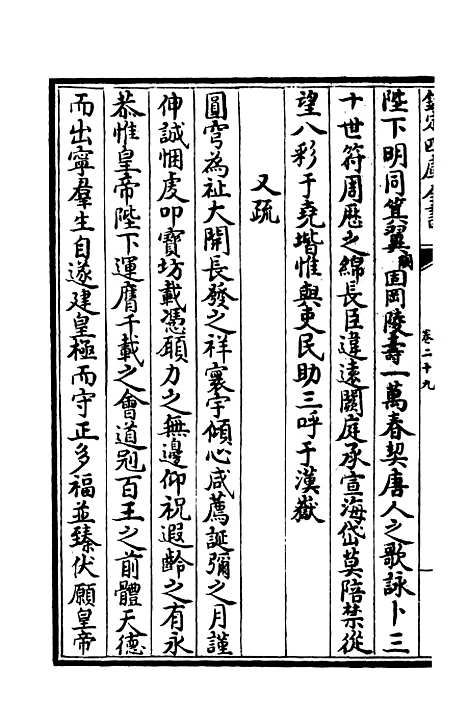 欽定四庫全書
卷二十九
陛下明同箕翼固岡陵壽一萬春契唐人之歌詠卜三
十世符周厯之綿長臣違遠闕庭承宣海岱莫陪禁從
望八彩于堯堦惟與吏民助三呼于漢嶽
又疏
圓穹為祉大開長發之祥寰宇傾心咸薦誕彌之月謹
伸誠悃虔叩寶坊載憑願力之無邊仰祝遐齡之有永
恭惟皇帝陛下運膺千載之會道冠百王之前體天德
而出寧羣生自遂建皇極而守正多福並臻伏願皇帝